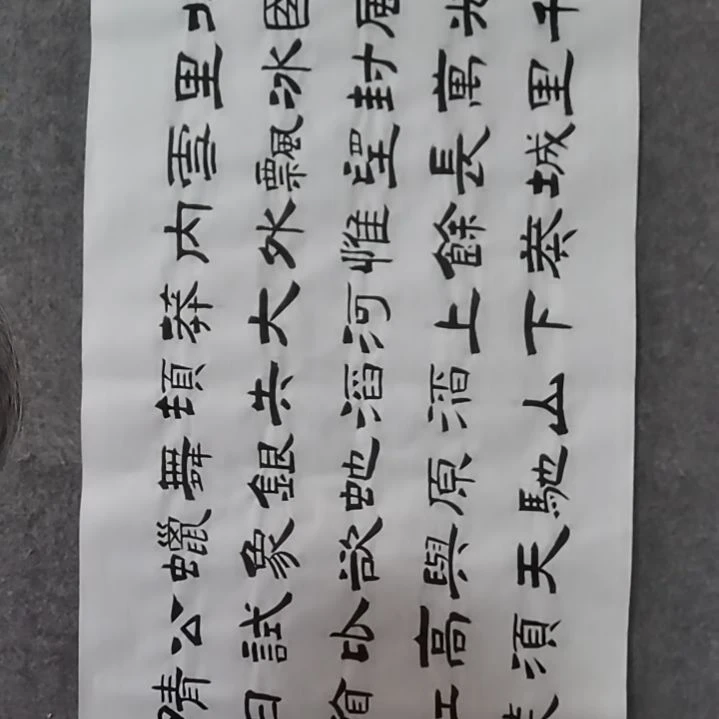 北國風光千
里冰封萬里
雪飄望長城
內外惟餘莽
莽大河上下
頓失滔滔山
舞銀蛇原馳
蠟象欲與天
公試比高須
晴日